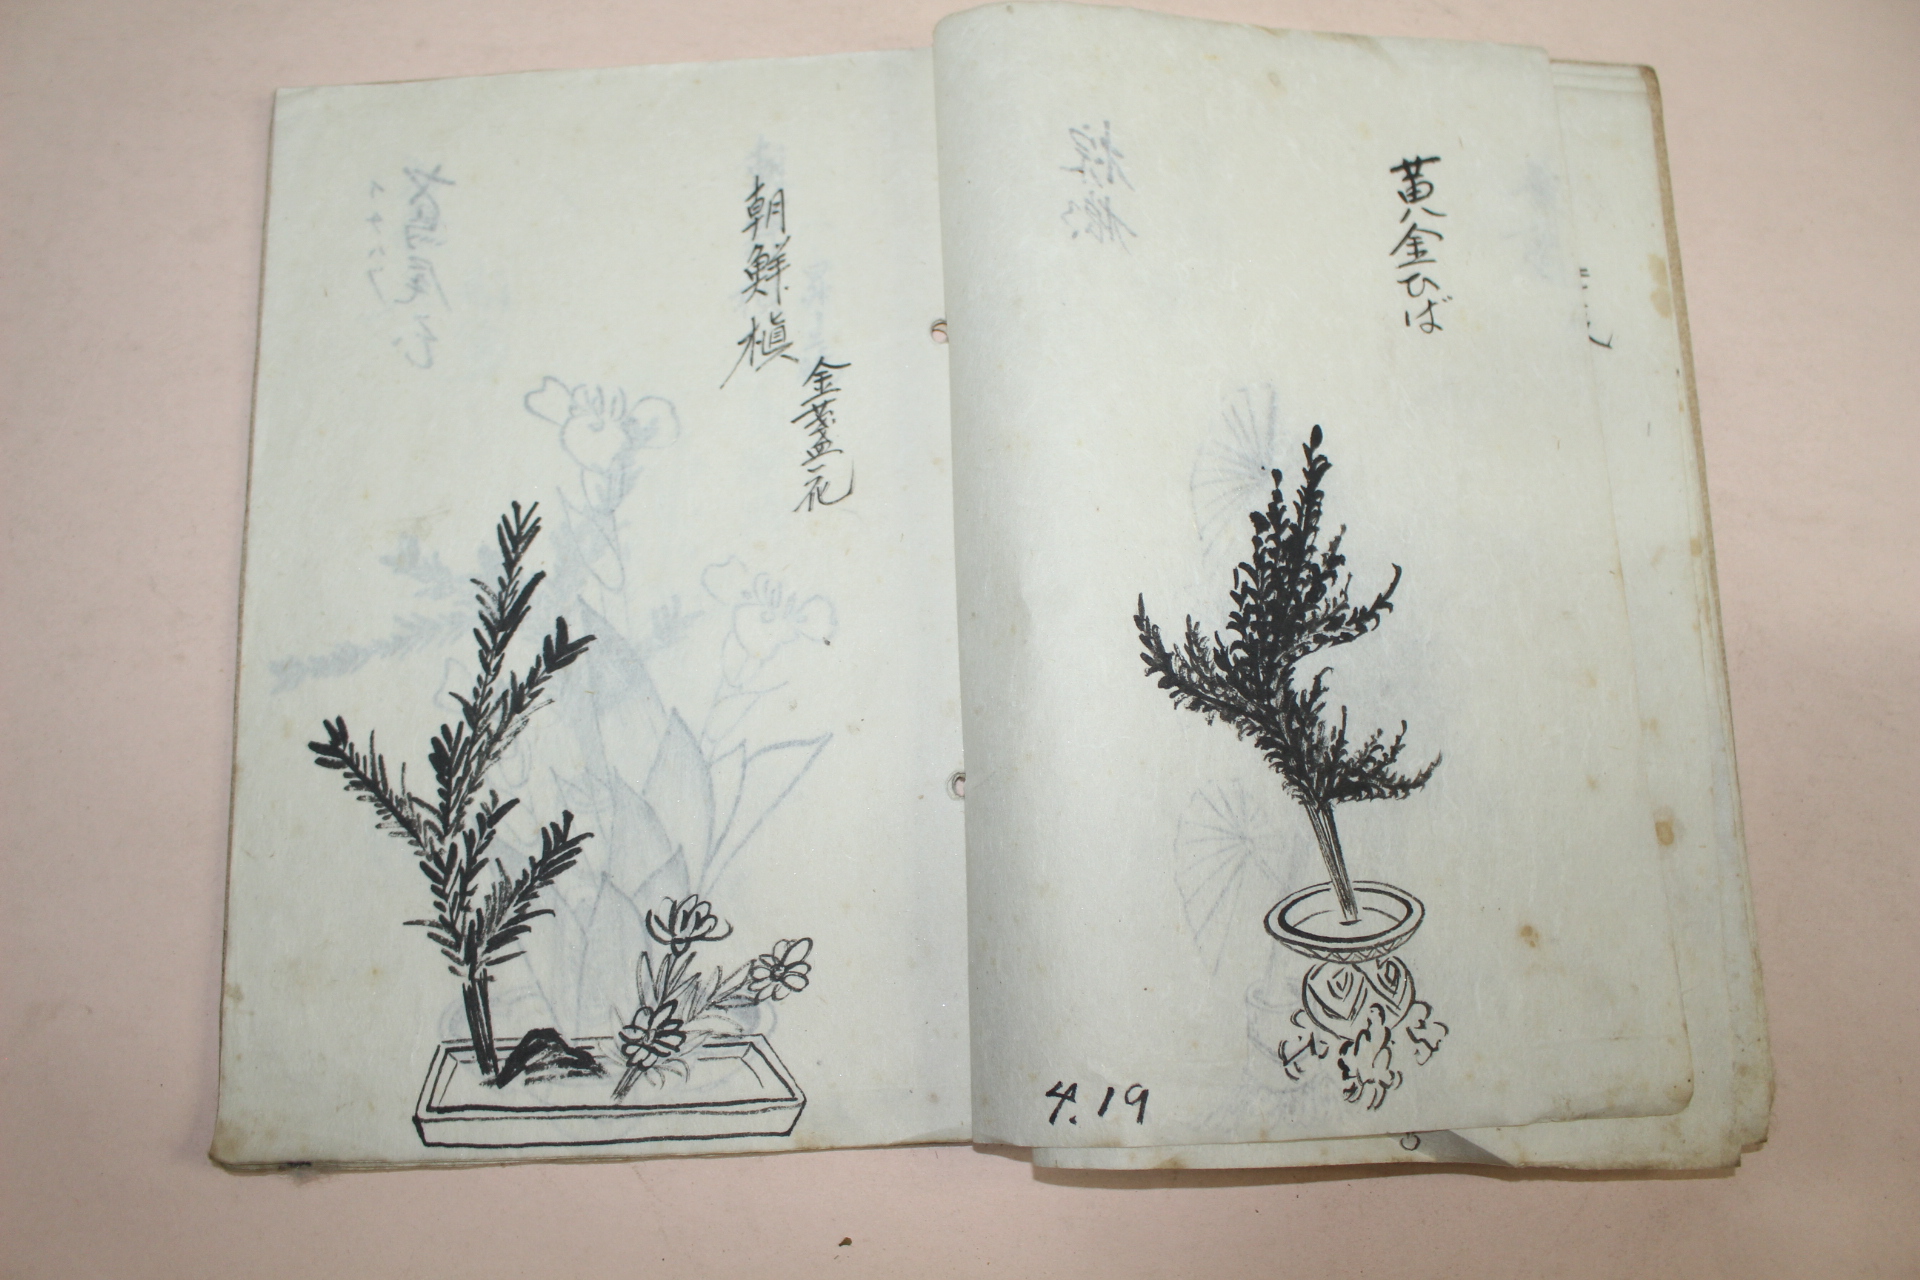 黄金ひば
4.19
朝鮮槇
金盞花